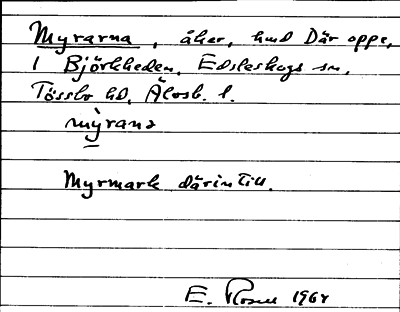 Myrarna, åker, hmd Där oppe,
1 Björkheden, Edsleskogs sn,
Tössbo hd, Älvsb. l.
myrana
Myrmark därintill.
E. Rosen 1964